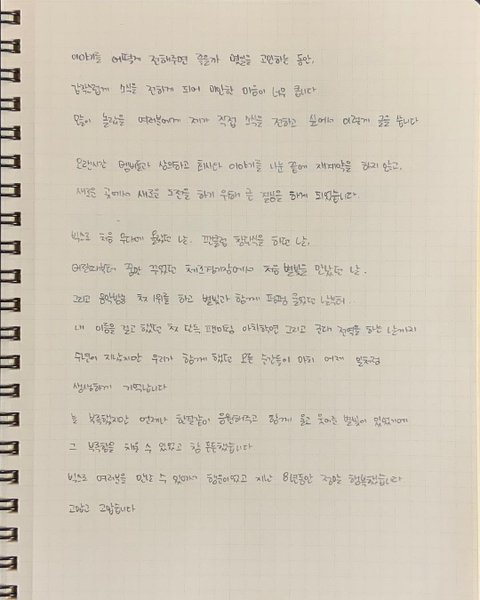 이야기를 어떻게 전해주면 좋을까 몇번을 고민하는 동안,
갑작스럽게 소식을 전하게 되어 미안한 마음이 너무 큽니다
많이 놀랐을 여러분에게 제가 직접 소식을 전하고 싶어서 이렇게 글을 씁니다
오랜시간 멤버들과 상의하고 회사와 이야기를 나눈 끝에 재계약을 하지 않고,
새로운 곳에서 새로운 도전을 하기 위해 큰 결심을 하게 되었습니다
빅스로 처음 무대에 올랐던 날. 팬클럽 창단식을 하던 날,
어릴때부터 꿈만 꾸었던 체조경기장에서 처음 별빛을 만났던 날.
그리고 음악방송 첫 1위를 하고 별빛과 함께 펑펑 울었던 날부터..
내 이름을 걸고 했던 첫 단독 팬미팅 아침하면 그리고 군대 전역을 하는 날까지
수년이 지났지만 우리가 함께 했던 모든 순간들이 마치 어제 일처럼
생생하게 기억납니다
늘 부족했지만 언제나 한결같이 응원해주고 함께 울고 웃어준 별빛이 있었기에
그 부족함을 채울 수 있었고 참 든든했습니다
빅스로 여러분을 만날 수 있어서 행운이었고 지난 8년동안 정말 행복했습니다
고맙고 고맙습니다